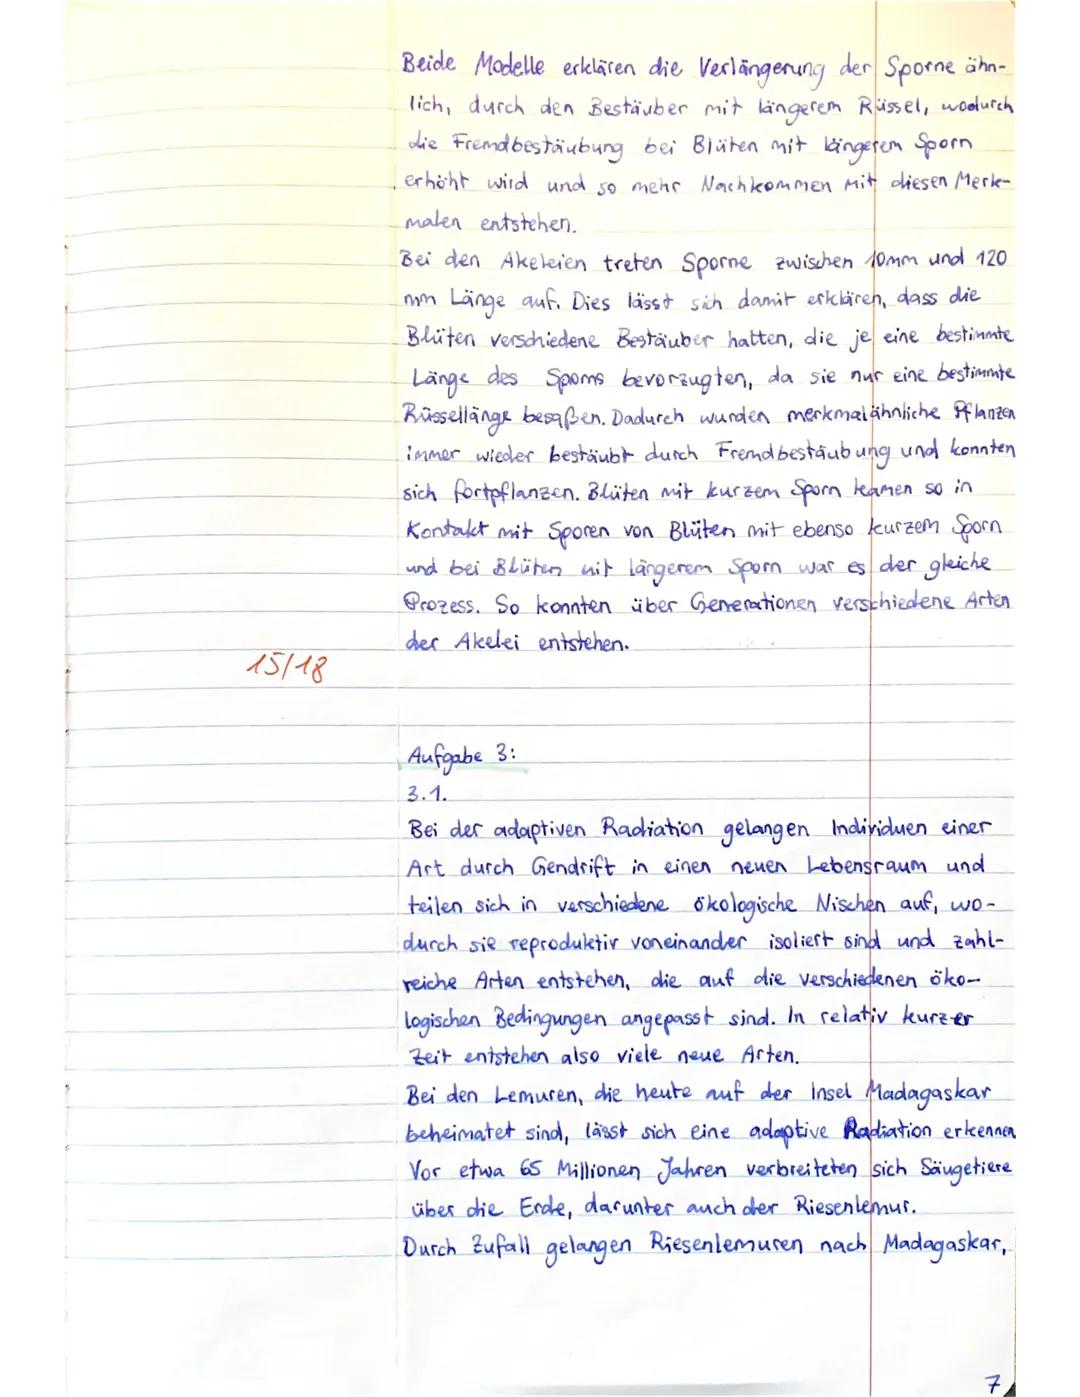 Beide Modelle erklären die Verlängerung der Sporne ähn-
lich, durch den Bestäuber mit längerem Rüssel, wodurch
die Fremdbestäubung bei Blüten mit längerem Sporn
erhöht wird und so mehr Nachkommen mit diesen Merk-
malen entstehen.
Bei den Akeleien treten Sporne zwischen 10mm und 120
mm Länge auf. Dies lässt sich damit erklären, dass die
Blüten verschiedene Bestäuber hatten, die je eine bestimmte
Länge des Sporns bevorzugten, da sie nur eine bestimmte
Rüssellänge besaßen. Dadurch wurden merkmalähnliche Pflanzen
immer wieder bestäubt durch Fremdbestäubung und konnten
sich fortpflanzen. Blüten mit kurzem Sporn kamen so in
Kontakt mit Sporen von Blüten mit ebenso kurzem Sporn
und bei Blüten mit längerem Sporn war es der gleiche
Prozess. So konnten über Generationen verschiedene Arten
der Akelei entstehen.
15/18
Aufgabe 3:
3.1.
Bei der adaptiven Radiation gelangen Individuen einer
Art durch Gendrift in einen neuen Lebensraum und
teilen sich in verschiedene ökologische Nischen auf, wo-
durch sie reproduktiv voneinander isoliert sind und zahl-
reiche Arten entstehen, die auf die verschiedenen öko-
logischen Bedingungen angepasst sind. In relativ kurzer
Zeit entstehen also viele neue Arten.
Bei den Lemuren, die heute auf der Insel Madagaskar
beheimatet sind, lässt sich eine adaptive Radiation erkennen
Vor etwa 65 Millionen Jahren verbreiteten sich Säugetiere
über die Erde, darunter auch der Riesenlemur.
Durch Zufall gelangen Riesenlemuren nach Madagaskar,
7